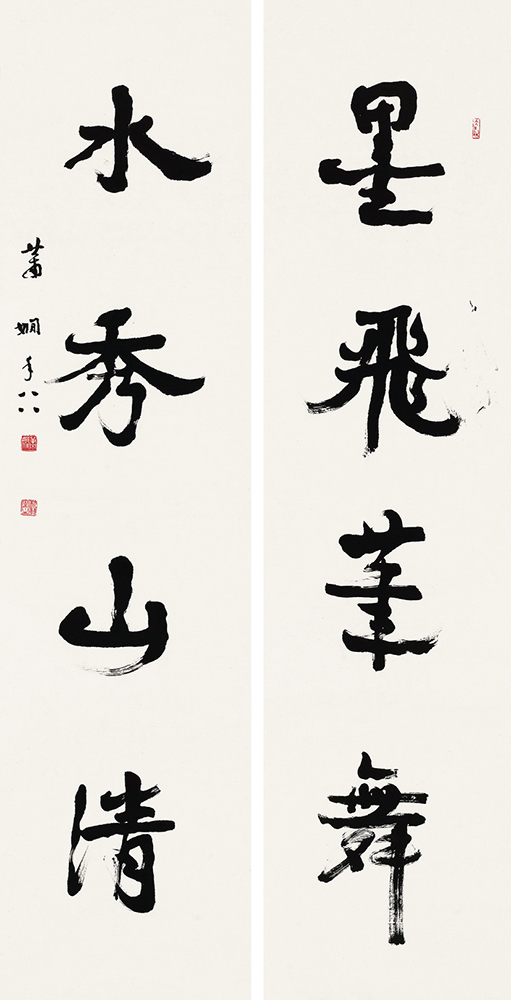 墨飛筆舞
水秀山清
蕭嫻年八八